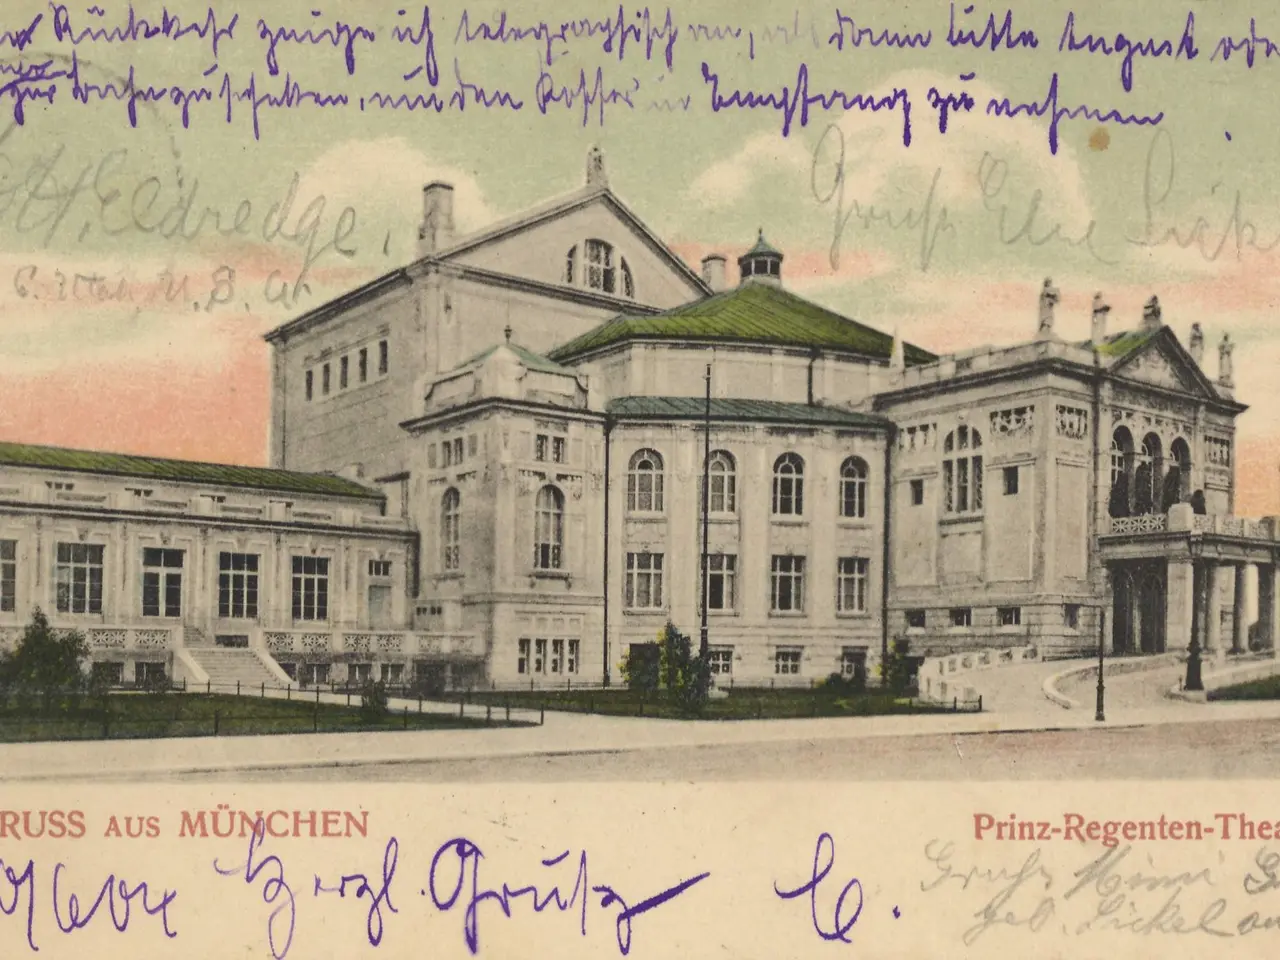 Rückkehr zeige ich telegraphisch an, dann bitte August ode
zur Bahn zu schicken, um den Koffer in Empfang zu nehmen.
H. Eldredge,
U.S.A.
Gruß Else Sick
RUSS AUS MÜNCHEN
Prinz-Regenten-Thea
Herzl. Gruß C.
Gruß Minni G
geb. Sickel